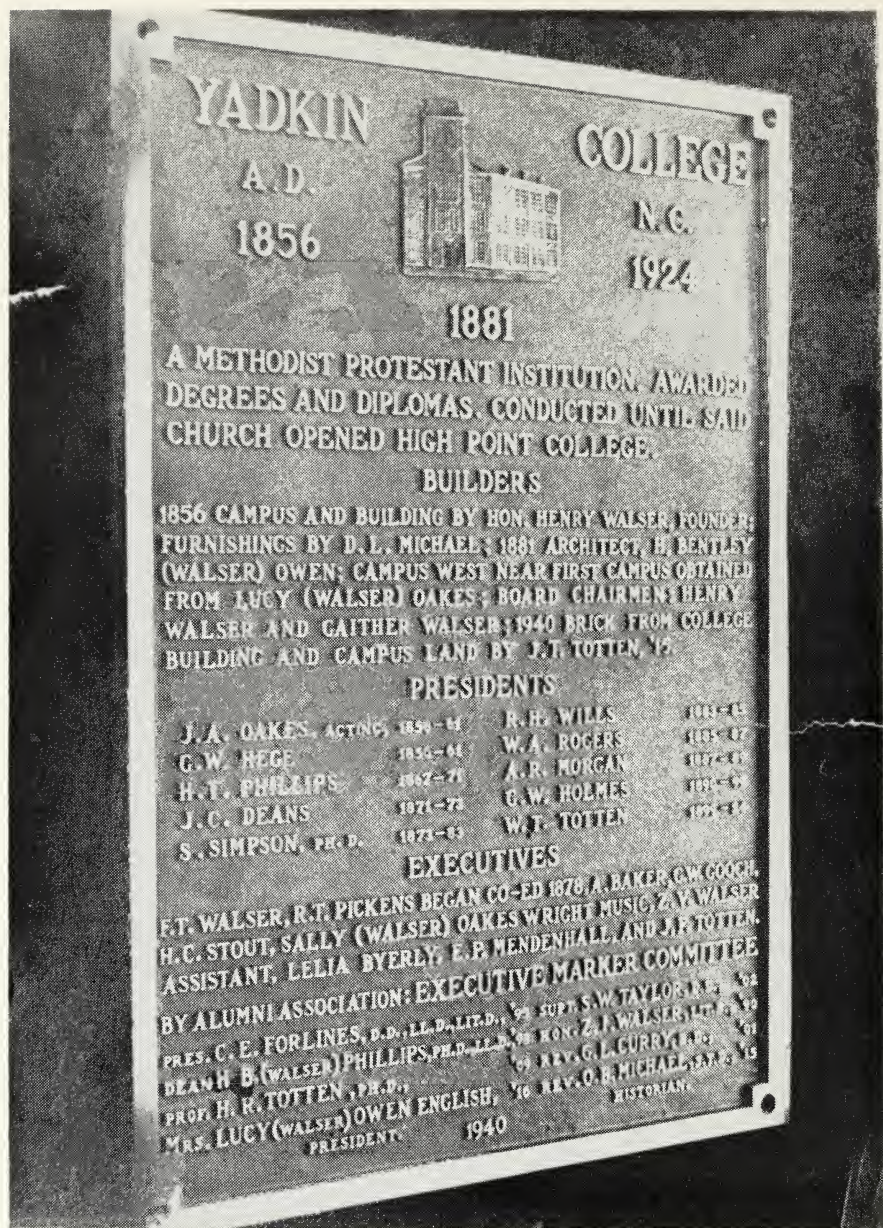 YADKIN COLLEGE
A.D. N.C.
1856 1924
1881
A METHODIST PROTESTANT INSTITUTION. AWARDED
DEGREES AND DIPLOMAS. CONDUCTED UNTIL SAID
CHURCH OPENED HIGH POINT COLLEGE.
BUILDERS
1856 CAMPUS AND BUILDING BY HON. HENRY WALSER, FOUNDER;
FURNISHINGS BY D.L. MICHAEL; 1881 ARCHITECT, H. BENTLEY
(WALSER) OWEN; CAMPUS WEST NEAR FIRST CAMPUS OBTAINED
FROM LUCY (WALSER) OAKES; BOARD CHAIRMEN; HENRY
WALSER AND GAITHER WALSER; 1940 BRICK FROM COLLEGE
BUILDING AND CAMPUS LAND BY J.T. TOTTEN, '15.
PRESIDENTS
J.A. OAKES, ACTING, R.H. WILLS
G.W. HEGE W.A. ROGERS
H.T. PHILLIPS 1867-71 A.R. MORGAN
J.C. DEANS 1871-73 G.W. HOLMES
S. SIMPSON, PH.D. 1873-83 W.T. TOTTEN
EXECUTIVES
F.T. WALSER, R.T. PICKENS BEGAN CO-ED 1878, A. BAKER, G.W. GOOCH,
H.C. STOUT, SALLY (WALSER) OAKES WRIGHT MUSIC, Z.V. WALSER
ASSISTANT, LELIA BYERLY, E.P. MENDENHALL, AND J.P. TOTTEN.
BY ALUMNI ASSOCIATION: EXECUTIVE MARKER COMMITTEE
PRES. C.E. FORLINES, D.D., LL.D., LIT.D., SUPT. S.W. TAYLOR,
DEAN H.B. (WALSER) PHILLIPS, PH.D., LL.D., HON. Z.I. WALSER,
PROF. H.R. TOTTEN, PH.D., REV. G.L. CURRY,
MRS. LUCY (WALSER) OWEN ENGLISH, '10 REV. O.B. MICHAEL,
PRESIDENT. 1940 HISTORIAN.